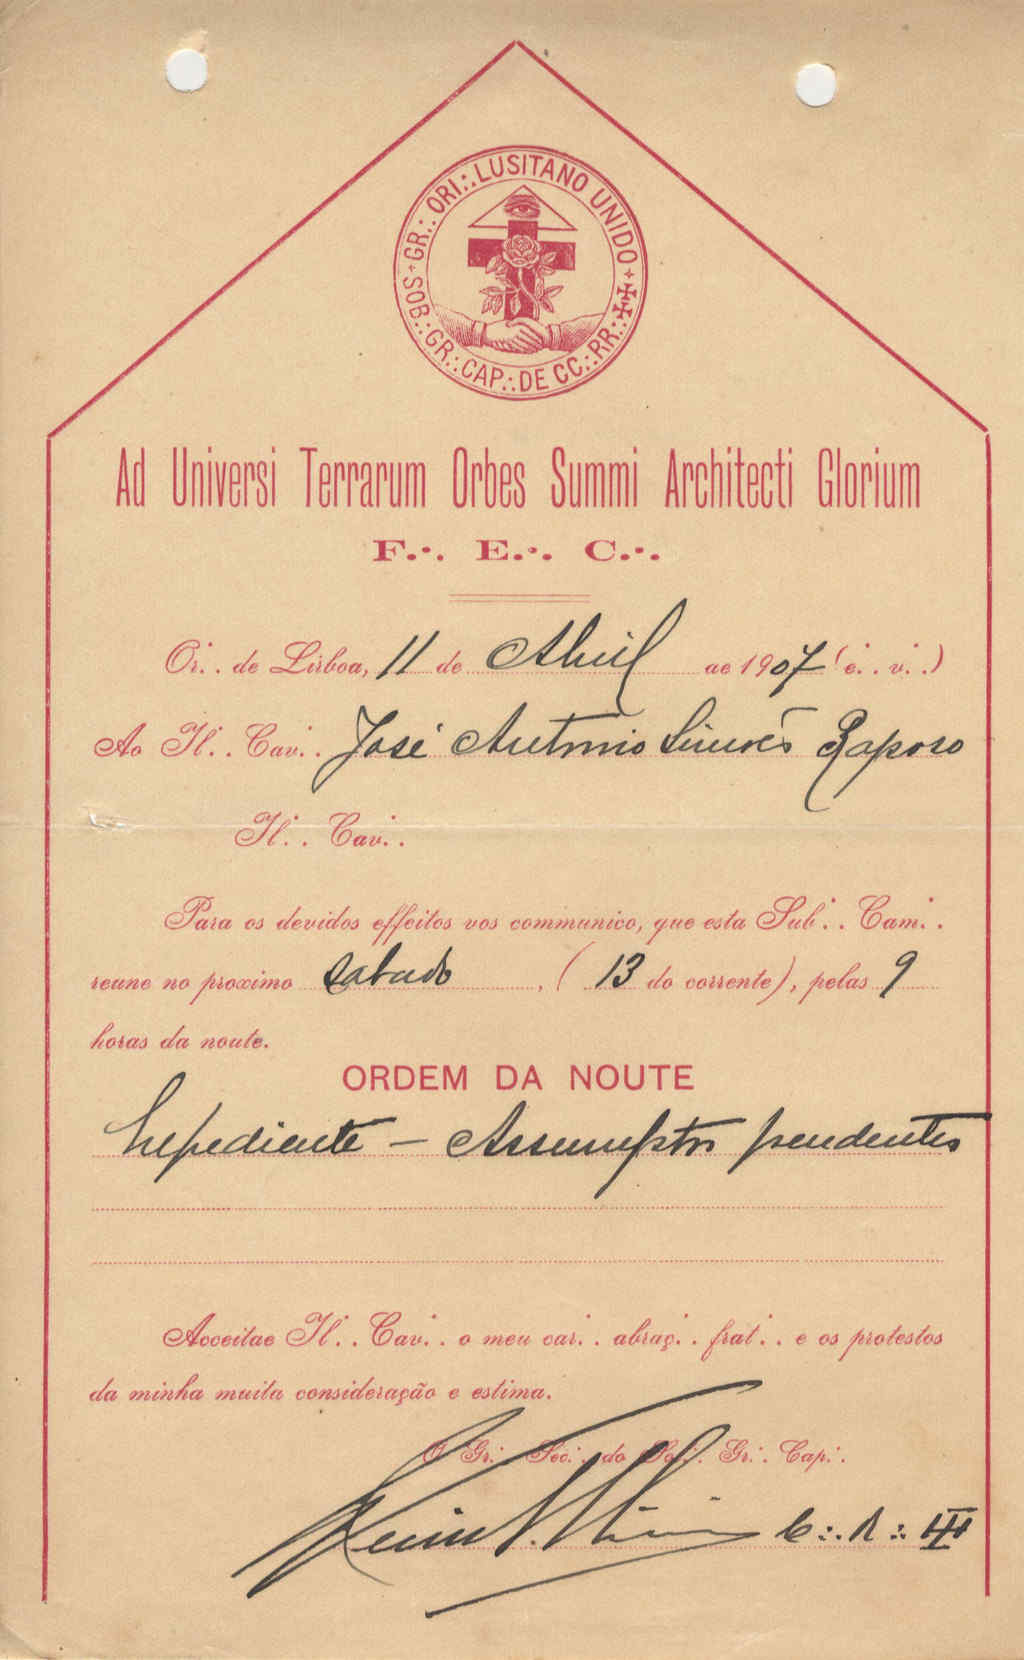 SOB∴ GR∴ CAP∴ DE CC∴ RR∴
GR∴ ORI∴ LUSITANO UNIDO
Ad Universi Terrarum Orbes Summi Architecti Glorium
F∴ E∴ C∴
Or∴ de Lisboa, 11 de Abril de 1907 (e∴ v∴)
Ao Il∴ Cav∴ José Antonio Simões Raposo
Il∴ Cav∴
Para os devidos effeitos vos communico, que esta Sub∴ Cam∴
reune no proximo sabado, (13 do corrente), pelas 9
horas da noute.
ORDEM DA NOUTE
Expediente – Assumptos pendentes
Acceitae Il∴ Cav∴ o meu car∴ abraç∴ frat∴ e os protestos
da minha muita consideração e estima.
O Gr∴ Sec∴ do Sob∴ Gr∴ Cap∴
C∴ R∴